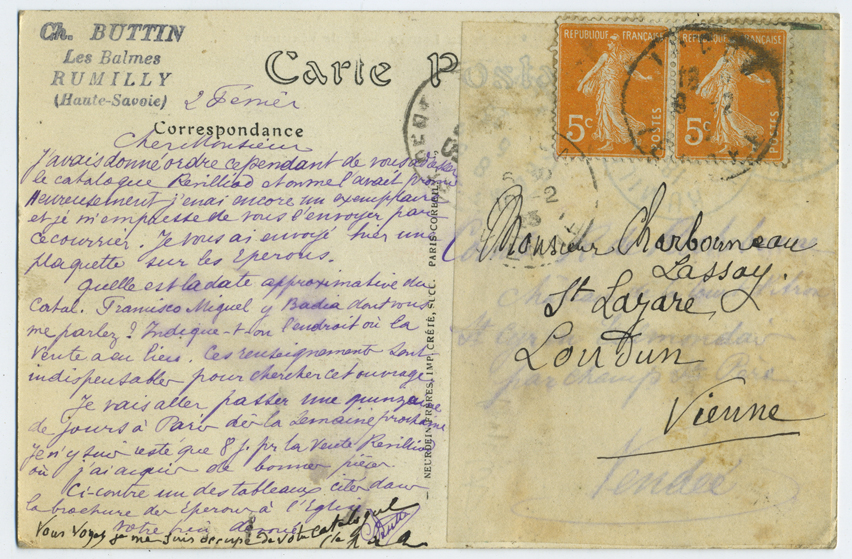 Ch. BUTTIN
Les Balmes
RUMILLY
(Haute-Savoie)
Carte P
2 Février
Correspondance
Cher Monsieur
J'avais donné ordre cependant de vous
le catalogue Revilliod et on me l'avait promis
Heureusement j'en ai encore un exemplaire
et je m'empresse de vous l'envoyer par
ce courrier. Je vous ai envoyé hier une
plaquette sur les Eperons.
Quelle est la date approximative du
Catal. Francisco Miquel y Badia dont vous
me parlez? Indique-t-on l'endroit où la
Vente a eu lieu. Ces renseignements sont
indispensables pour chercher cet ouvrage
Je vais aller passer une quinzaine
de jours à Paris dès la semaine prochaine
Je n'y suis resté que 8 j. pr la Vente Revilliod
où j'ai acquis de bonnes pièces
Ci-contre un des tableaux cités dans
la brochure des Eperons à l'Eglise
Votre bien dévoué
Vous voyez je me suis occupé de votre Catalogue
NEURDEIN FRÈRES, IMP. CRÉTÉ, SUCC. PARIS-CORBEIL
REPUBLIQUE FRANÇAISE
5c
POSTES
REPUBLIQUE FRANÇAISE
5c
POSTES
Monsieur Charbonneau
Lassay.
St Lazare
Loudun
Vienne
Vendée